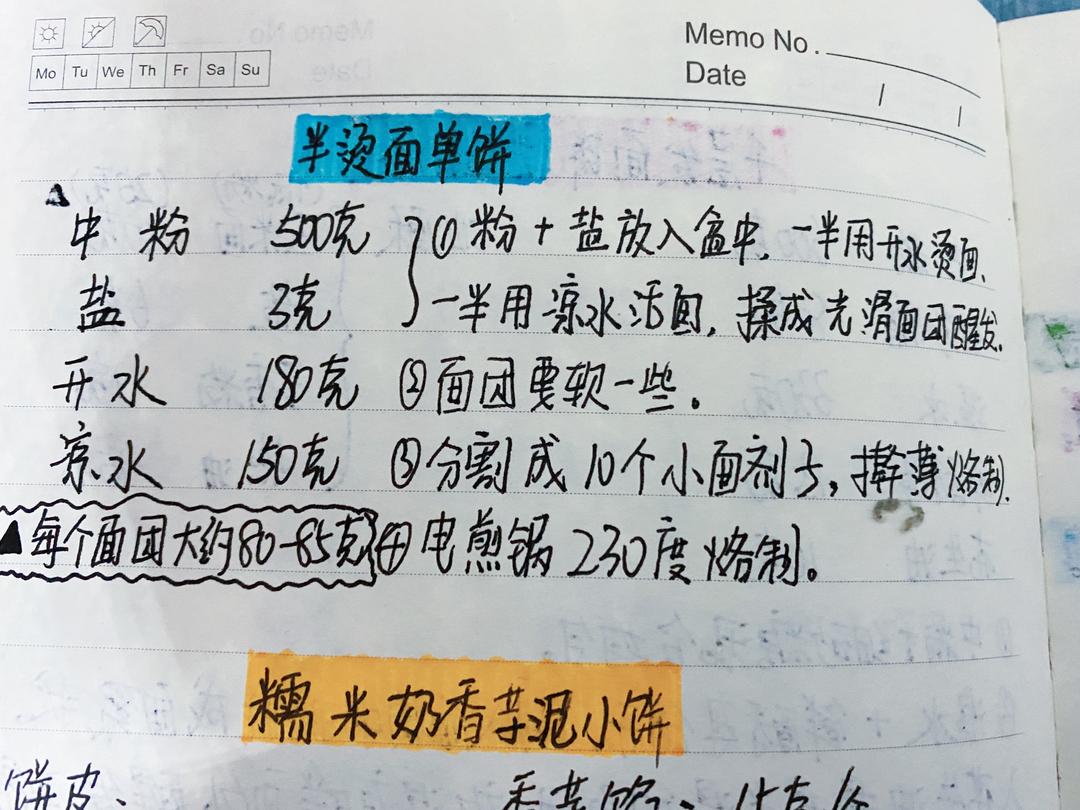 Memo No.
Date / /
Mo Tu We Th Fr Sa Su
半烫面单饼
中粉 500克 ①粉+盐放入盆中,一半用开水烫面,
盐 3克 一半用凉水活面,揉成光滑面团醒发.
开水 180克 ②面团要软一些。
凉水 150克 ③分割成10个小面剂子,擀薄烙制.
▲每个面团大约80-85克 ④电煎锅230度烙制。
糯米奶香芋泥小饼
饼皮: 香芋馅: 15克/个